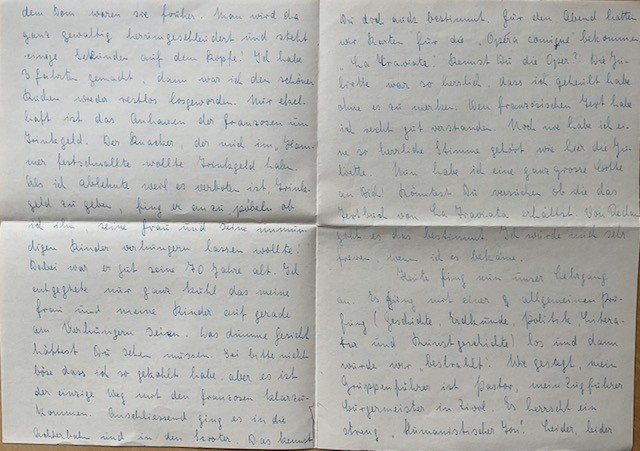 dem Dom waren sie früher. Man wird da
ganz gewaltig herumgeschleudert und steht
einige Sekunden auf dem Kopfe! Ich habe
3 Fahrten gemacht, dann war ich den schönen
Kuchen wieder restlos losgeworden. Nur ekel-
haft ist das Anhauen der Franzosen um
Trinkgeld. Der Knacker, der mich im „Ham-
mer festschnallte wollte Trinkgeld haben.
Als ich ablehnte weil es verboten ist Trink-
geld zu geben, fing er an zu pöbeln ob
ich ihn, seine Frau und seine unmün-
digen Kinder verhungern lassen wollte!
Dabei war er gut seine 70 Jahre alt. Ich
entgegnete nur ganz kühl das meine
Frau und meine Kinder auch gerade
am Verhungern seien. Was dumme Gesicht
hättest Du sehen müssen. Sei bitte nicht
böse dass ich so gekohlt habe, aber es ist
der einzige Weg mit den Franzosen klarzu-
kommen. Anschliessend ging es in die
Achterbahn und in den Scooter. Das kennst
Du doch auch bestimmt. Für den Abend hatten
wir Karten für die „Opéra comique" bekommen
„La Traviata! Kennst Du die Oper? Die
war so herrlich, dass ich geheult habe
ohne es zu merken. Den französischen Text habe
ich recht gut verstanden. Noch nie habe ich ei-
ne so herrliche Stimme gehört wie hier die
Nun habe ich eine ganz grosse Bitte
an Dich! Könntest Du versuchen ob Du das
Textbuch von La Traviata erhältst. Von Reclam
gibt es das bestimmt. Ich würde mich sehr
freuen, wenn ich es bekäme.
Heute fing nun unser Lehrgang
an. Es ging mit einer allgemeinen Prü-
fung (Geschichte, Erdkunde, Politik, Litera-
tur und Kunstgeschichte) los und dann
wurde wir „bestrahlt". Wie gesagt, mein
Gruppenführer ist Pastor, mein Zugführer
Bürgermeister in Zivil. Es herrscht ein
streng „Humanistischer Ton". Leider, leider